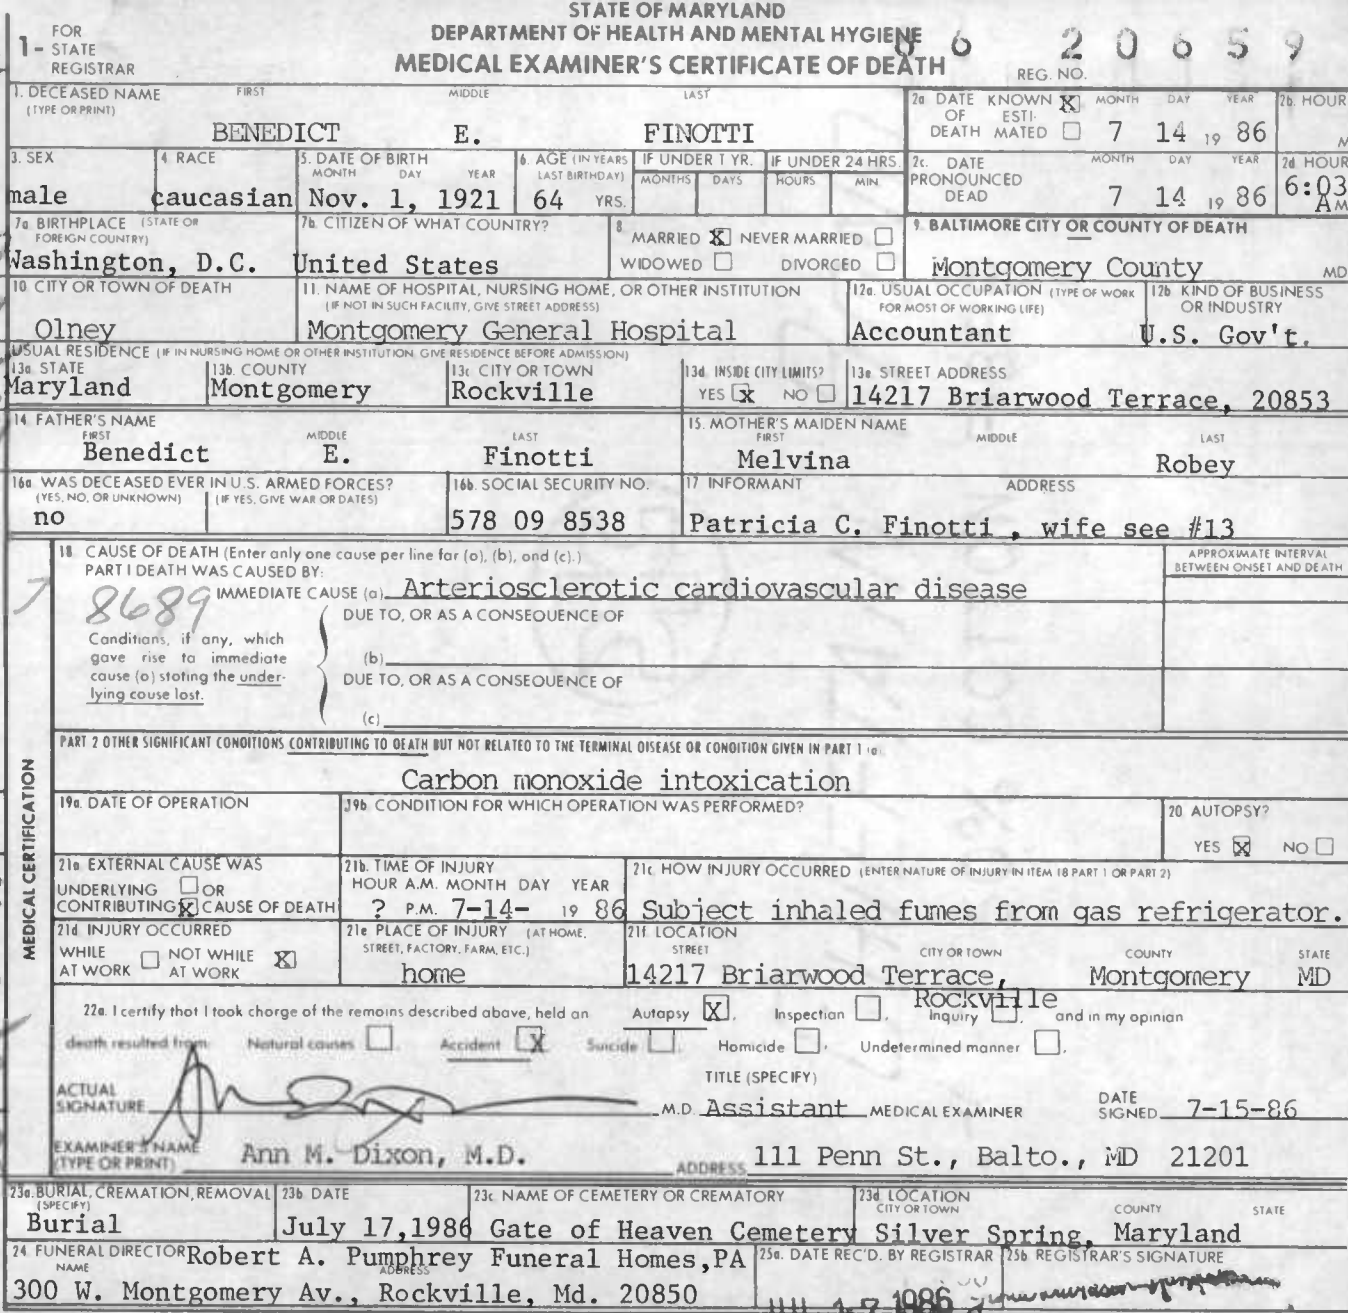 STATE OF MARYLAND
DEPARTMENT OF HEALTH AND MENTAL HYGIENE
MEDICAL EXAMINER'S CERTIFICATE OF DEATH
1- FOR STATE REGISTRAR
REG. NO. 86 20659
1. DECEASED NAME (TYPE OR PRINT) FIRST MIDDLE LAST
BENEDICT E. FINOTTI
2a DATE OF DEATH KNOWN X ESTIMATED MONTH DAY YEAR 7 14 19 86
2b. HOUR M
3. SEX male
4 RACE caucasian
5. DATE OF BIRTH MONTH DAY YEAR Nov. 1, 1921
6. AGE (IN YEARS LAST BIRTHDAY) 64 YRS.
IF UNDER 1 YR. MONTHS DAYS
IF UNDER 24 HRS. HOURS MIN.
2c. DATE PRONOUNCED DEAD MONTH DAY YEAR 7 14 19 86
2d HOUR 6:03 AM
7a BIRTHPLACE (STATE OR FOREIGN COUNTRY) Washington, D.C.
7b. CITIZEN OF WHAT COUNTRY? United States
8 MARRIED X NEVER MARRIED
WIDOWED DIVORCED
9. BALTIMORE CITY OR COUNTY OF DEATH
Montgomery County MD
10 CITY OR TOWN OF DEATH Olney
11. NAME OF HOSPITAL, NURSING HOME, OR OTHER INSTITUTION (IF NOT IN SUCH FACILITY, GIVE STREET ADDRESS)
Montgomery General Hospital
12a. USUAL OCCUPATION (TYPE OF WORK FOR MOST OF WORKING LIFE) Accountant
12b KIND OF BUSINESS OR INDUSTRY U.S. Gov't.
USUAL RESIDENCE (IF IN NURSING HOME OR OTHER INSTITUTION GIVE RESIDENCE BEFORE ADMISSION)
13a STATE Maryland
13b. COUNTY Montgomery
13c CITY OR TOWN Rockville
13d INSIDE CITY LIMITS? YES X NO
13e STREET ADDRESS 14217 Briarwood Terrace, 20853
14 FATHER'S NAME FIRST MIDDLE LAST
Benedict E. Finotti
15. MOTHER'S MAIDEN NAME FIRST MIDDLE LAST
Melvina Robey
16a WAS DECEASED EVER IN U.S. ARMED FORCES? (YES, NO, OR UNKNOWN) (IF YES, GIVE WAR OR DATES)
no
16b. SOCIAL SECURITY NO. 578 09 8538
17 INFORMANT ADDRESS
Patricia C. Finotti , wife see #13
MEDICAL CERTIFICATION
18 CAUSE OF DEATH (Enter only one cause per line for (a), (b), and (c).)
PART I DEATH WAS CAUSED BY:
APPROXIMATE INTERVAL BETWEEN ONSET AND DEATH
8689
IMMEDIATE CAUSE (a) Arteriosclerotic cardiovascular disease
DUE TO, OR AS A CONSEQUENCE OF
Conditions, if any, which gave rise to immediate cause (a) stating the underlying cause last.
(b)
DUE TO, OR AS A CONSEQUENCE OF
(c)
PART 2 OTHER SIGNIFICANT CONDITIONS CONTRIBUTING TO DEATH BUT NOT RELATED TO THE TERMINAL DISEASE OR CONDITION GIVEN IN PART 1 (a)
Carbon monoxide intoxication
19a. DATE OF OPERATION
19b CONDITION FOR WHICH OPERATION WAS PERFORMED?
20 AUTOPSY? YES X NO
21a EXTERNAL CAUSE WAS
UNDERLYING OR
CONTRIBUTING X CAUSE OF DEATH
21b. TIME OF INJURY
HOUR A.M. MONTH DAY YEAR
? P.M. 7-14- 19 86
21c HOW INJURY OCCURRED (ENTER NATURE OF INJURY IN ITEM 18 PART 1 OR PART 2)
Subject inhaled fumes from gas refrigerator.
21d INJURY OCCURRED
WHILE AT WORK NOT WHILE AT WORK X
21e PLACE OF INJURY (AT HOME, STREET, FACTORY, FARM, ETC.)
home
21f LOCATION STREET CITY OR TOWN COUNTY STATE
14217 Briarwood Terrace, Rockville Montgomery MD
22a. I certify that I took charge of the remains described above, held an Autopsy X, Inspection , Inquiry , and in my opinion
death resulted from: Natural causes , Accident X Suicide , Homicide , Undetermined manner .
ACTUAL SIGNATURE M.D.
TITLE (SPECIFY)
Assistant MEDICAL EXAMINER
DATE SIGNED 7-15-86
EXAMINER'S NAME (TYPE OR PRINT) Ann M. Dixon, M.D.
ADDRESS 111 Penn St., Balto., MD 21201
23a. BURIAL, CREMATION, REMOVAL (SPECIFY) Burial
23b. DATE July 17,1986
23c NAME OF CEMETERY OR CREMATORY Gate of Heaven Cemetery
23d. LOCATION CITY OR TOWN COUNTY STATE
Silver Spring, Maryland
24 FUNERAL DIRECTOR NAME Robert A. Pumphrey Funeral Homes,PA
ADDRESS 300 W. Montgomery Av., Rockville, Md. 20850
25a. DATE REC'D. BY REGISTRAR 1986
25b. REGISTRAR'S SIGNATURE